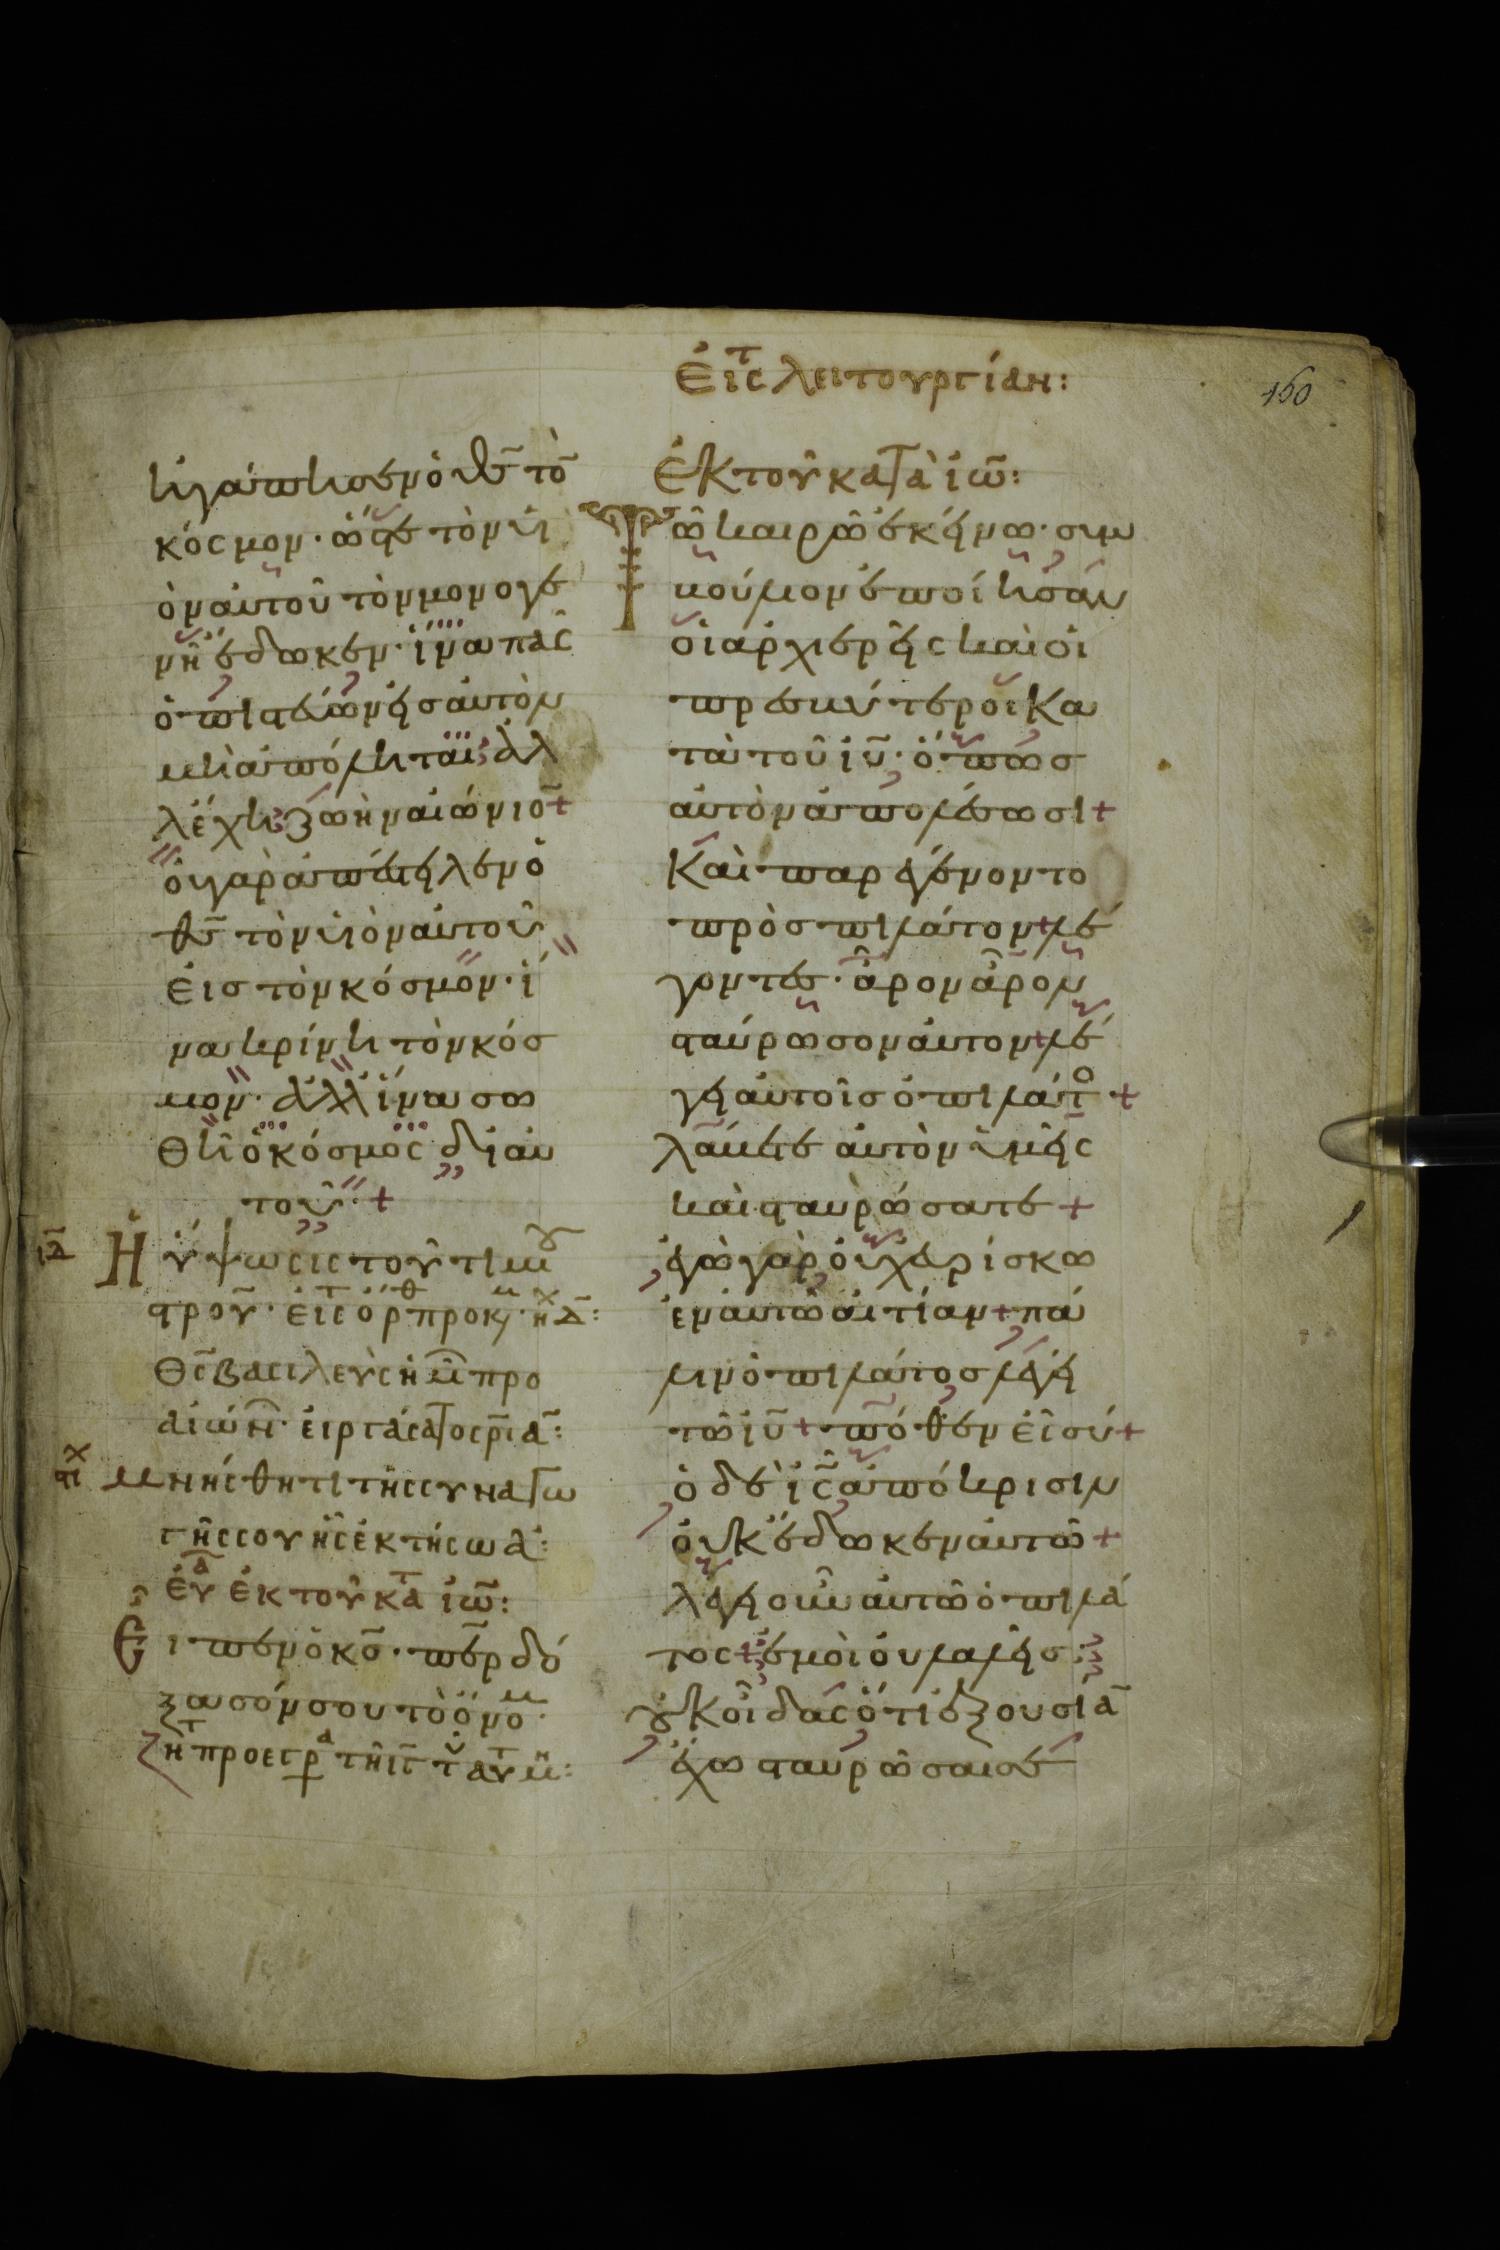 160
ἠγάπησεν ὁ θς̄ τὸ̄
κόσμον· ὥστε τὸν υἱ
ὸν αὐτοῦ τὸν μονογε
νῆ ἔδωκεν· ἵνα πᾶς
ὁ πιστεύων εἰς αὐτὸν
μὴ ἀπόληται· ἀλ
λ' ἔχη ζωὴν αἰώνιο̄+
οὐ γὰρ ἀπέστειλεν ὁ
θς̄ τὸν υἱὸν αὐτοῦ
εἰς τὸν κόσμον· ἵ
να κρίνη τὸν κόσ
μον· ἀλλ' ἵνα σω
θῆ ὁ κόσμος δι' αὐ
τοῦ·+
ιδ̄ Ἡ ὕψωσις τοῦ τιμ
στρου̅· εἰς τ ὄρθ προκ· ἦχ δ̄:
Θς̄ βασιλεὺς ἡμ̂ προ
αἰών· εἰργάσατο σρ̄ίᾱ:
στι χ μνήσθητι τῆς συναγω
γῆς σου ἧς ἐκτήσω ἀ:
ἐυ̅ ἐκ τοῦ κατ ἰω̄:
Εἶπεν ὁ κς̄· πε̄ρ δό
ξασόν σου τὸ ὄνομ·
ζητ προεγρα τῆ
Εἰς τ λειτουργίαν:
Ἐκ τοῦ κατὰ ἰω̄:
Τῶ καιρῶ ἐκείνω· συμ
βούλιον ἐποίησαν
οἱ ἀρχιερεῖς καὶ οἱ
πρεσβύτεροι κα
τὰ τοῦ ἰῡ· ὅπως
αὐτὸν ἀπολέσωσι+
Καὶ παρεγένοντο
πρὸς πιλάτον+λέ
γοντες· ἆρον ἆρον
σταύρωσον αὐτον+λέ
γει αὐτοῖς ὁ πιλάτο+
λάβετε αὐτὸν ὑμεῖς
καὶ σταυρώσατε+
ἐγὼ γὰρ οὐχ εὑρίσκω
ἐν αὐτῶ αἰτίαν+πά
λιν ὁ πιλάτος λέγει
τῶ ἰῡ+πόθεν εἶ σύ+
ὁ δὲ ις̄ ἀπόκρισιν
οὐκ ἔδωκεν αὐτῶ+
λέγει οὖν αὐτῶ ὁ πιλά
τος+ἐμοὶ οὐ λαλεῖς·
οὐκ οἶδας ὅτι ἐξουσίᾱ
ἔχω σταυρῶσαι σέ